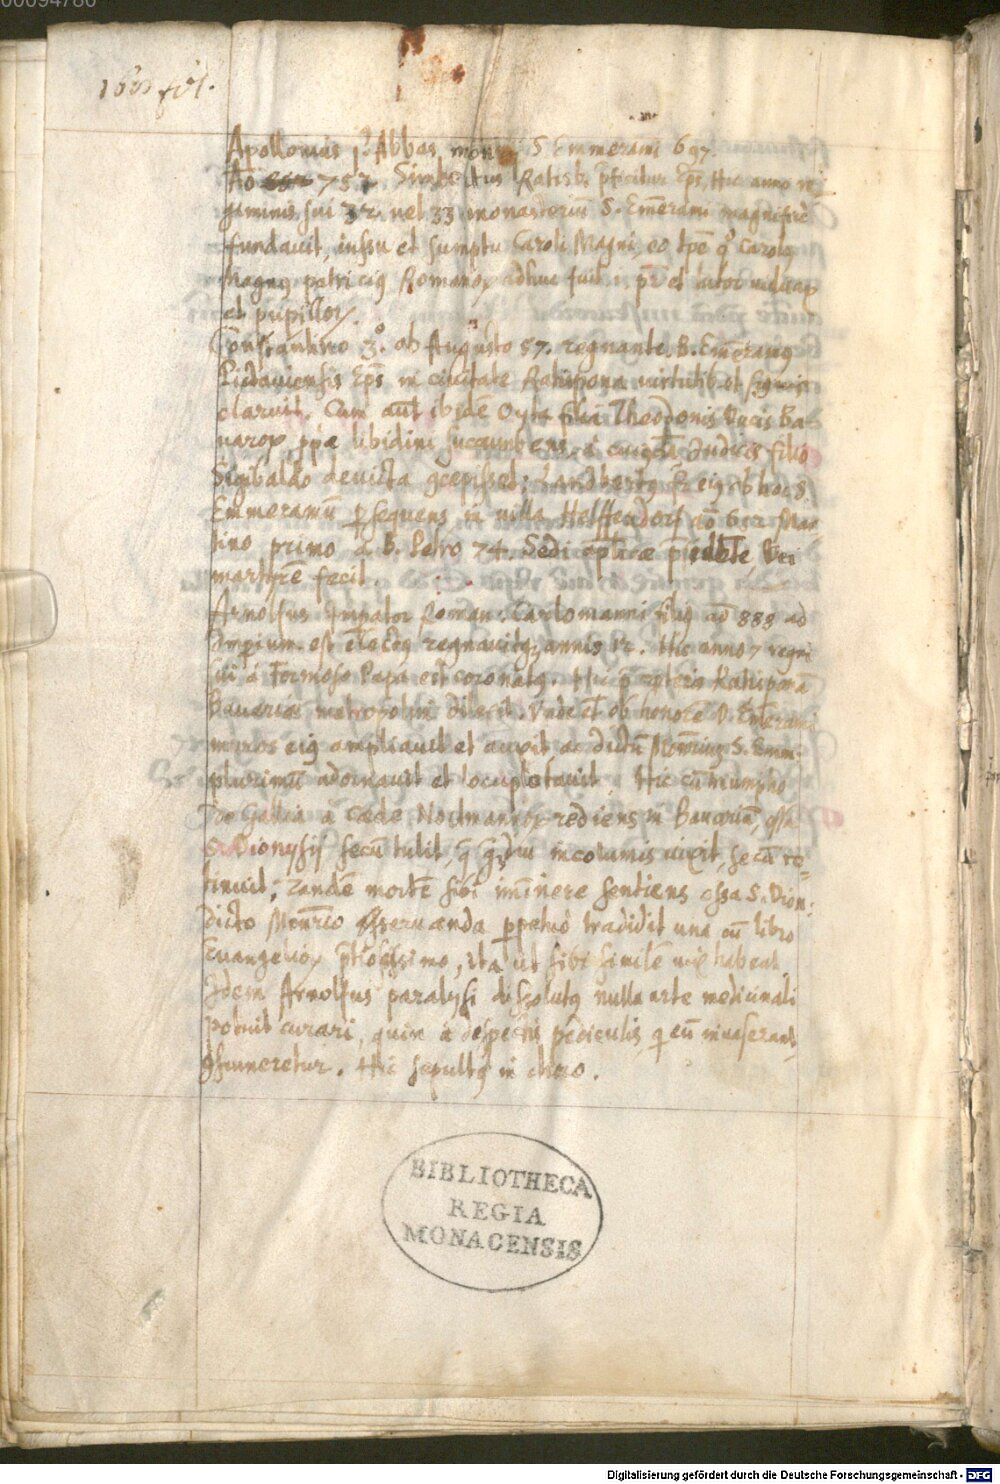 00094780
Apollonius j⁹ Abbas S Emmerami 697.
Aō 752 Ratisb. pficitur Eps, Hic anno re
giminis sui 32 vel 33 monasteriū S. Emerami magnificè
fundavit, iussu et sumptu Caroli Magni, eo tpē qᵒ Carolꝰ
Magnꝰ patriciꝰ Romanoꝝ adhuc fuit pr̄ et tutor viduaꝝ
et pupilloꝝ.
Constantino 3.º ab Augusto 57. regnante B. Emeramꝰ
Pictaviensis Eps in civitate Ratispona virtutib. et signis
claruit. Cum aūt ibidē Oyta filia Theodonis Ducis Ba-
varoꝝ, ppᵃe libidini succumbens, à Judicis filio
Sigibaldo devicta ↄcepisset; Landbertꝰ fr̄ eiꝰ ob hoc S.
Emmeramū ꝑsequens in villa Helffendorf aō 652 Mar
tino primo à B. Petro 74. Sedi aplicæ pⁱdēte, Dei
martyrē fecit.
Arnolfus Impator Roman. Carlomanni filiꝰ aō 888 ad
Impium est electꝰ regnavitqꝫ annis 12. Hic anno 7 regni
sui à Formoso Papa est coronatꝰ. Hic p̄ cæteris Ratisponā
Bavariæ metropolim dilexit. Vnde et ob honorē D. Emerami
muros eiꝰ ampliavit et auxit ac dictū S. Emm.
plurimū adornavit et locupletavit. Hic cū triumpho
De Gallia à cæde Nodmanoꝝ rediens in Bavariā, ossa
S. Dionysij secū tulit, qᵉ qᵃmdiu incolumis vixit, secū re-
tinuit; Tandē mortē sibi iminere sentiens ossa S. Dion:
Dicto Monr̄io ↄservanda ꝑpetuò tradidit una cū libro
Evangelioꝝ p̄tiosissimo, ita ut sibi similē vix habeat
Idem Arnolfus paralysi dissolutꝰ nulla arte medicinali
potuit curari, quin à despectis pediculis, q̄ eū invaserant,
ↄsumeretur. Hic sepultꝰ in choro.
BIBLIOTHECA
REGIA
MONACENSIS
Digitalisierung gefördert durch die Deutsche Forschungsgemeinschaft - DFG